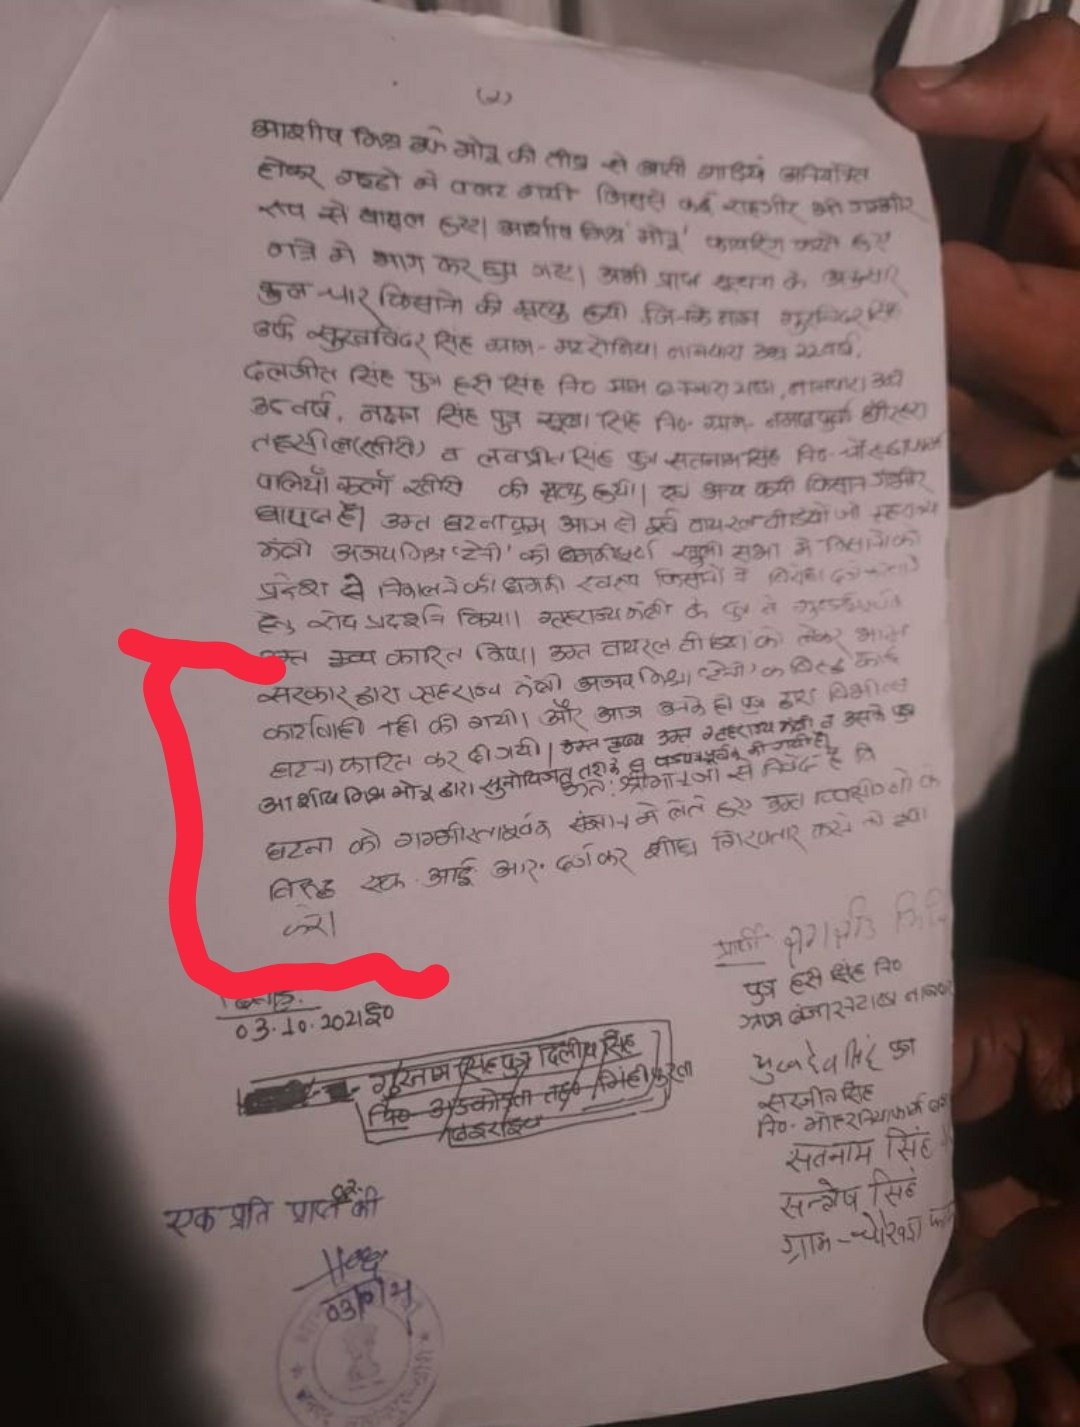 (2)
आशीष मिश्र उर्फ मोनू की तीव्र से आती गाडियां अनियंत्रित
होकर गड्ढो मे पलट गयी जिससे कई राहगीर भी गम्भीर
रूप से घायल हुए। आशीष मिश्र 'मोनू' फायरिंग करते हुए
गन्ने मे भाग कर छुप गए। अभी प्राप्त सूचना के अनुसार
कुल चार किसानो की मृत्यु हुयी जिनके नाम गुरविन्दर सिंह
उर्फ सुखविंदर सिंह ग्राम- मटरोनिया नानपारा उम्र 22 वर्ष,
दलजीत सिंह पुत्र हरी सिंह नि० ग्राम बन्जारा टाडा, नानपारा उम्र
35 वर्ष, नक्षत्र सिंह पुत्र सुखा सिंह नि०- ग्राम- नामदार पुरवा धौरहरा
तहसील (खीरी) व लवप्रीत सिंह पुत्र सतनाम सिंह नि०- चौखडा फार्म
पलियाँ कलाँ खीरी की मृत्यु हुयी। एवं अन्य कयी किसान गम्भीर
घायल है। उक्त घटनाक्रम आज से पूर्व वायरल वीडियो जो गृहराज्य
मंत्री अजय मिश्र 'टेनी' की धमकीपूर्ण खुली सभा मे किसानो को
प्रदेश से निकालने की धमकी स्वरूप किसानों ने विरोध दर्ज कराने
हेतु रोष प्रदर्शन किया। गृहराज्य मंत्री के पुत्र ने
उक्त कृत्य कारित किया। उक्त वायरल वीडियो को लेकर भारत
सरकार द्वारा गृहराज्य मंत्री अजय मिश्रा 'टेनी' के विरुद्ध कोई
कार्यवाही नही की गयी। और आज उनके ही पुत्र द्वारा विभत्स
घटना कारित कर दी गयी। उक्त कृत्य उक्त गृहराज्य मंत्री व उसके पुत्र
आशीष मिश्र मोनू द्वारा सुनियोजित तरीके से षडयंत्रपूर्वक की गयी है।
अतः श्रीमान जी से निवेदन है कि
घटना को गम्भीरतापूर्वक संज्ञान मे लेते हुए उक्त दोषियों के
विरुद्ध एफ. आई. आर. दर्ज कर शीघ्र गिरफ्तार करने की कृपा
करे।
दिनांक.
03.10.2021ई०
गुरनाम सिंह पुत्र दिलीप सिंह
नि०
बहराइच
एक प्रति प्राप्त की
03/10/21
प्रार्थी
पुत्र हरी सिंह नि०
ग्राम बंजारन टाडा नानपारा
सुखदेव सिंह पुत्र
सरजीत सिंह
नि०- मोहरनिया फार्म
सतनाम सिंह
सन्तोष सिंह
ग्राम- चौखडा फार्म